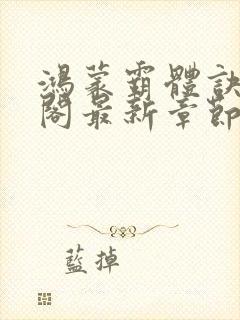 鴻蒙霸體訣
閣最新章節
藍掉